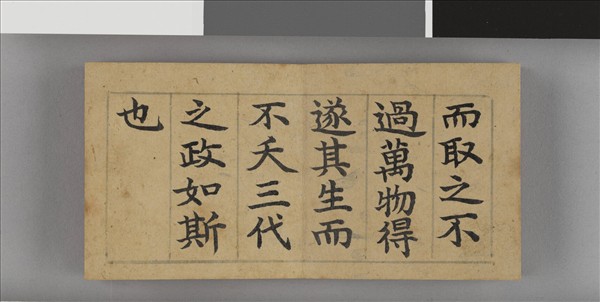 而取之不
過萬物得
遂其生而
不夭三代
之政如斯
也